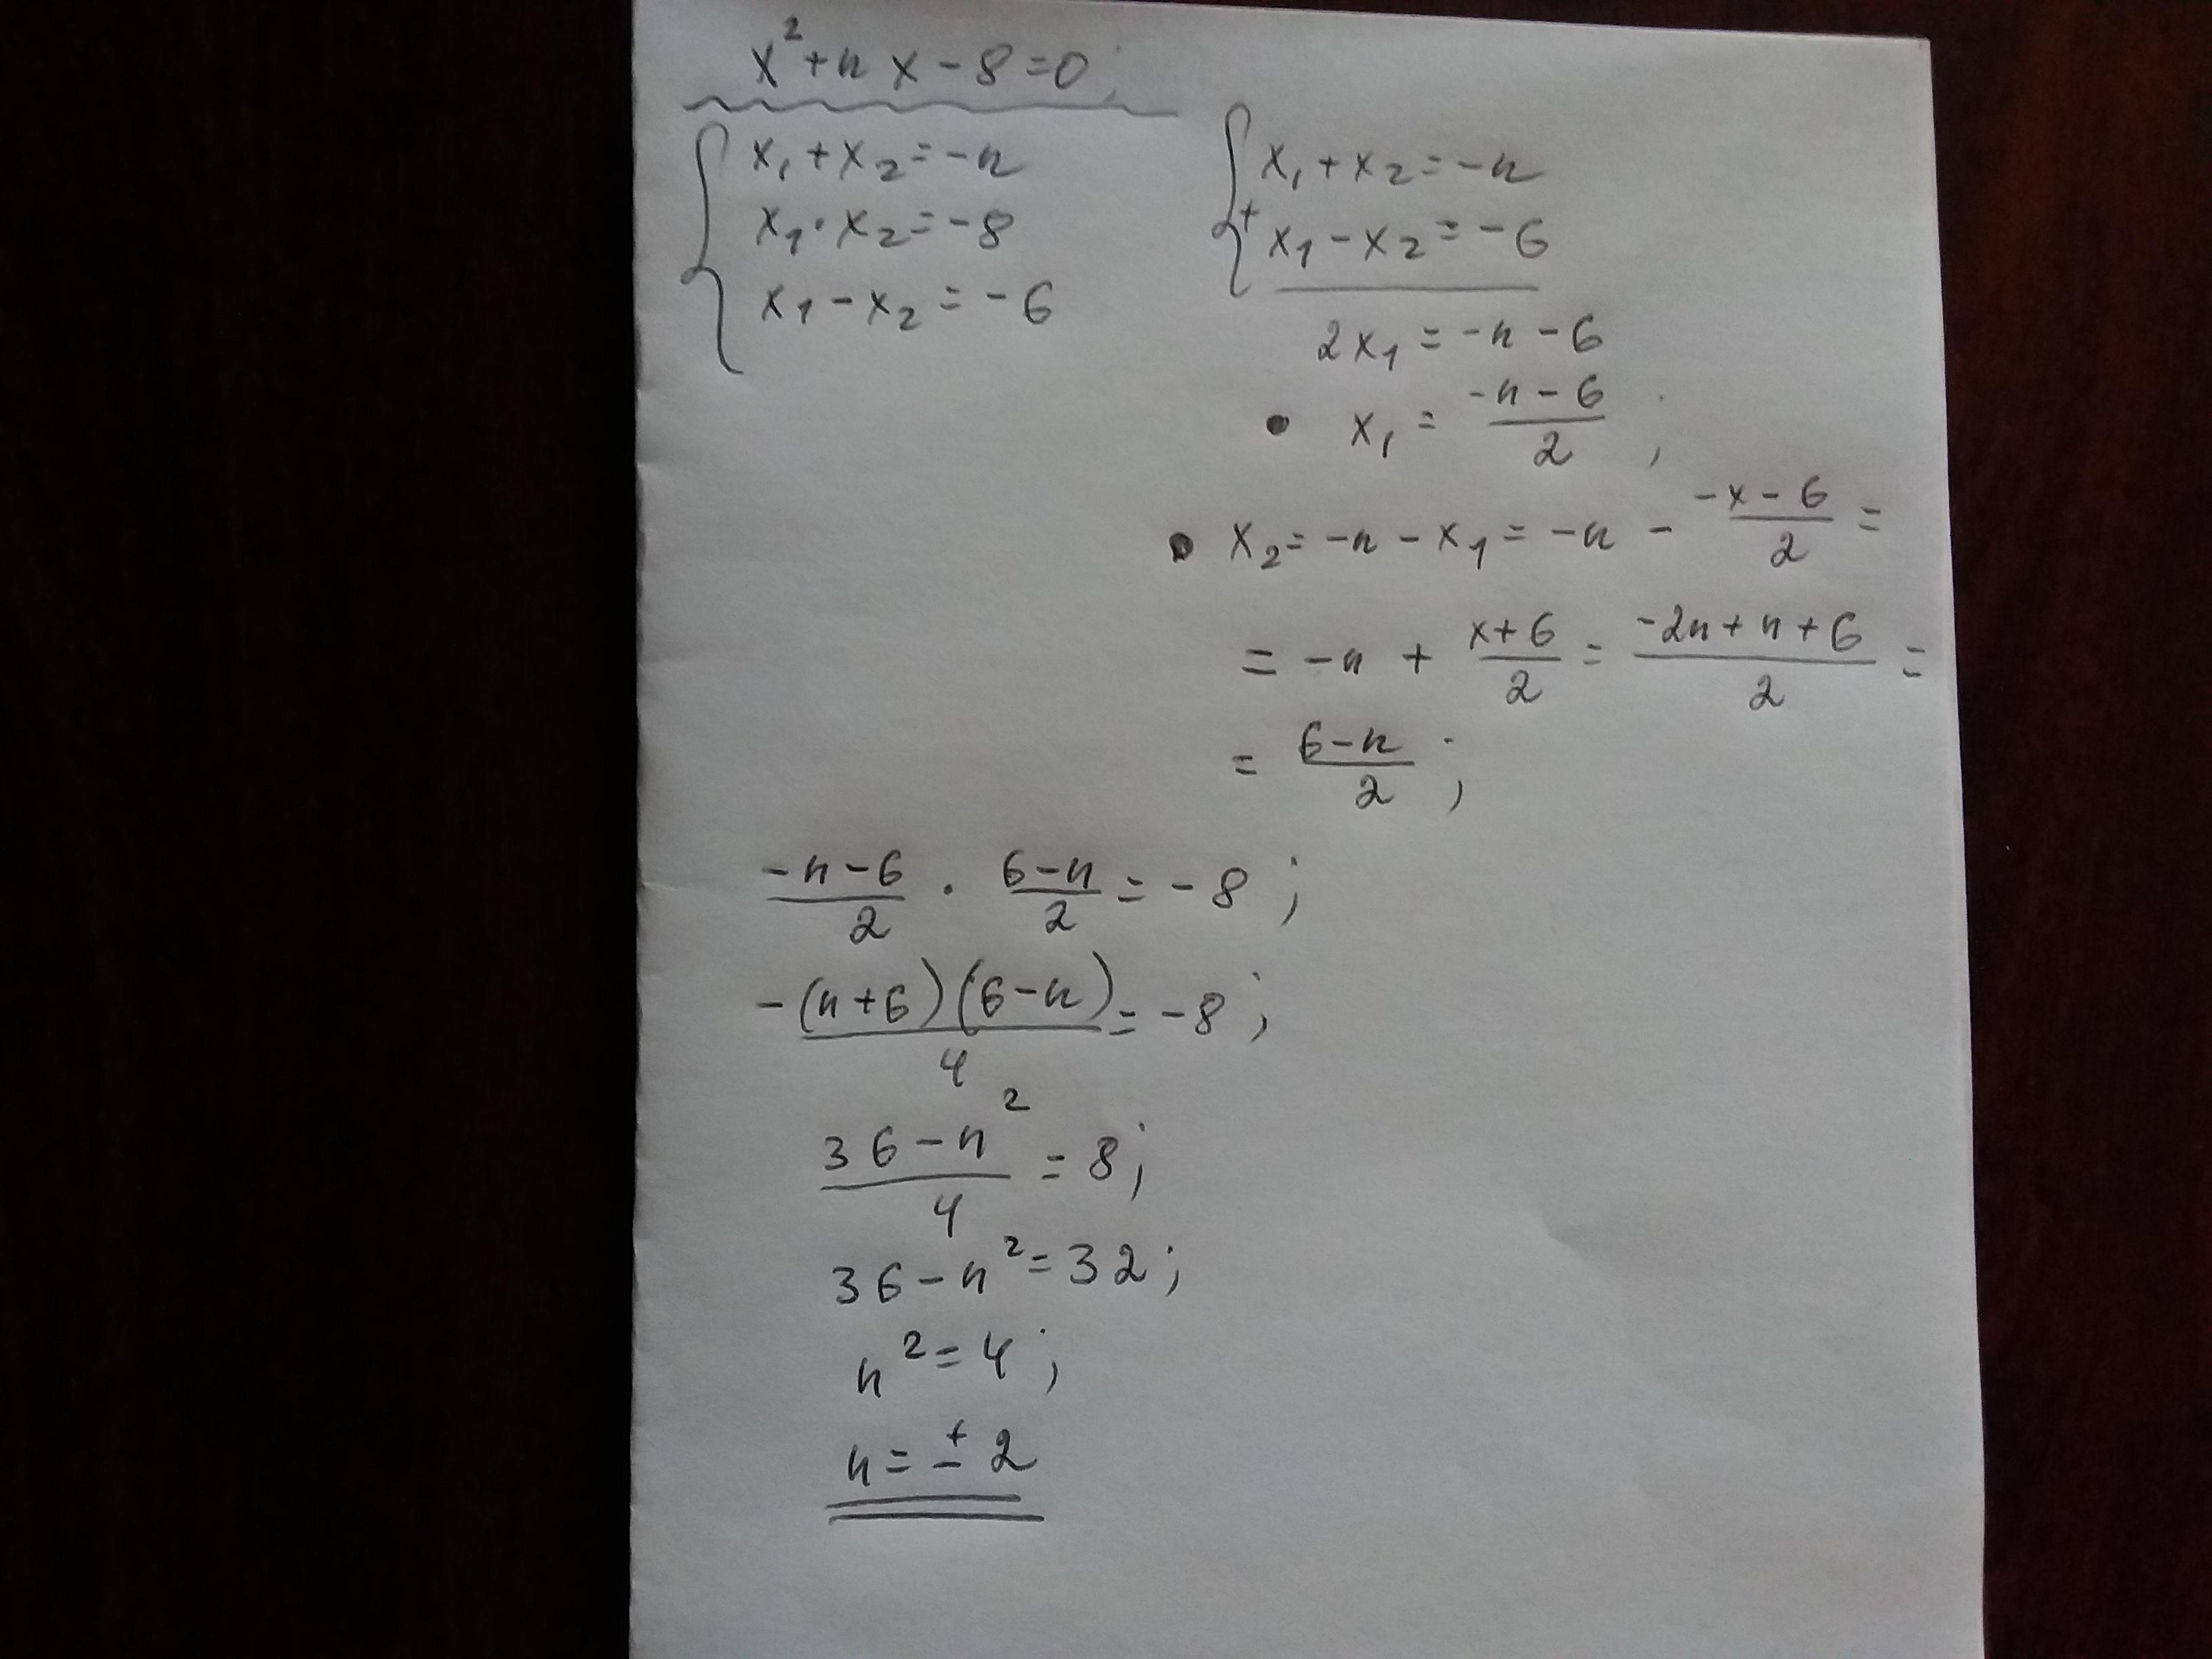 x² + n x − 8 = 0;
{ x₁ + x₂ = −n
x₁ · x₂ = −8
x₁ − x₂ = −6
{ x₁ + x₂ = −n
+ x₁ − x₂ = −6
2x₁ = −n − 6
• x₁ = (−n − 6)/2 ;
• x₂ = −n − x₁ = −n − (−x − 6)/2 =
= −n + (x + 6)/2 = (−2n + n + 6)/2 =
= (6 − n)/2 ;
(−n − 6)/2 · (6 − n)/2 = −8 ;
−(n + 6)(6 − n)/4 = −8 ;
(36 − n²)/4 = 8 ;
36 − n² = 32 ;
n² = 4 ;
n = ± 2